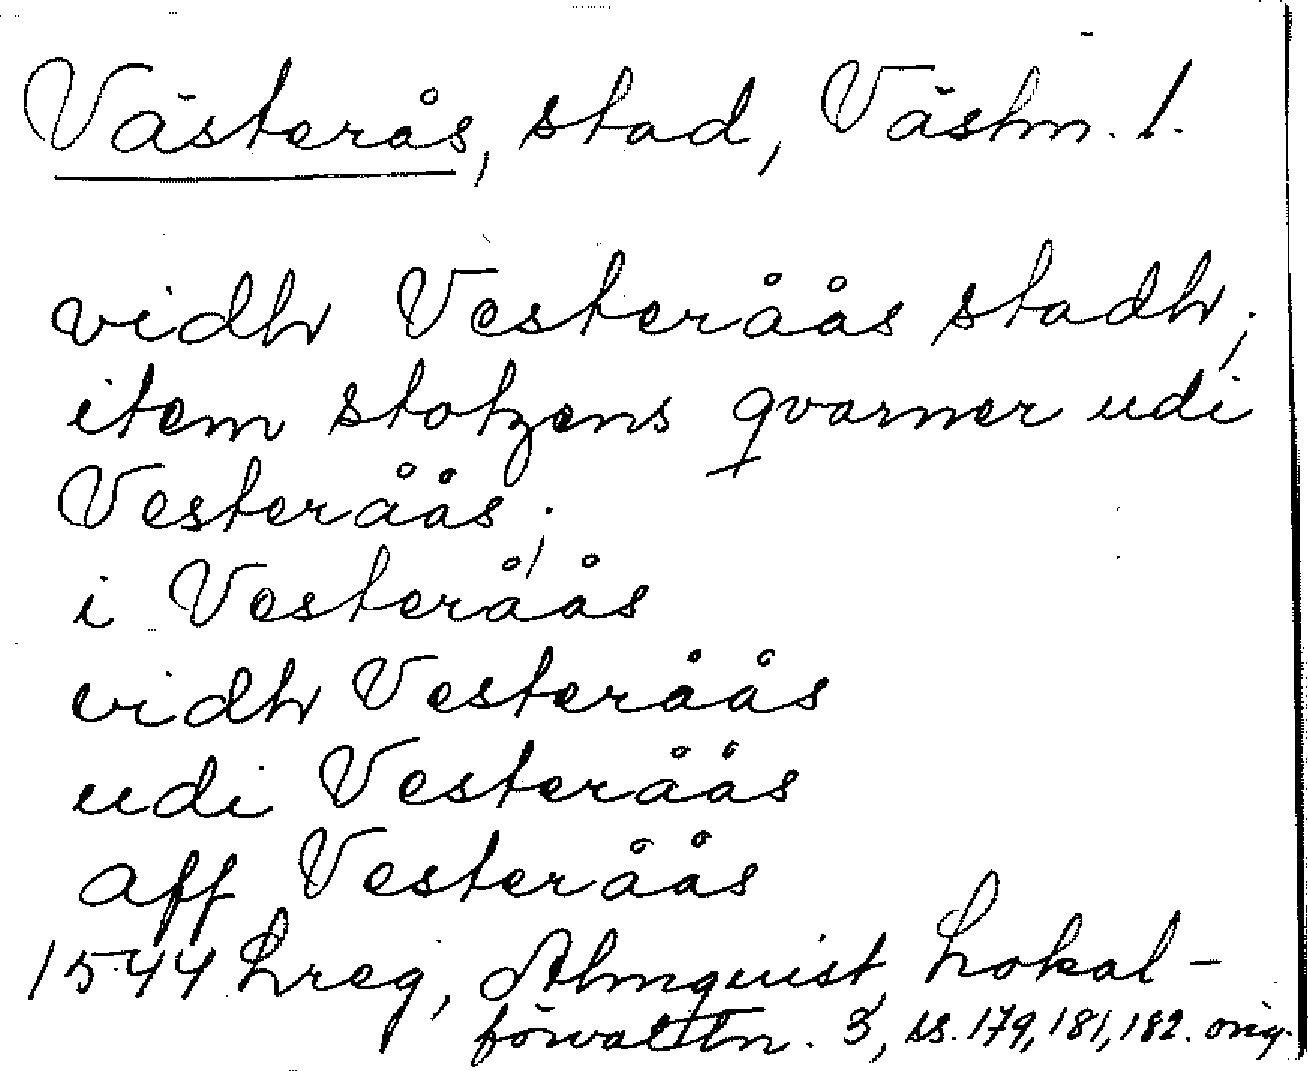 Västerås, stad, Västm. l.
vidh Vesteråås stadh;
item slotzens qvarner udi
Vesteråås;
i Vesteråås
vidh Vesteråås
udi Vesteråås
aff Vesteråås
1544 Lreg, Almquist, Lokal-
förvaltn. 3, ss. 179, 181, 182. orig.